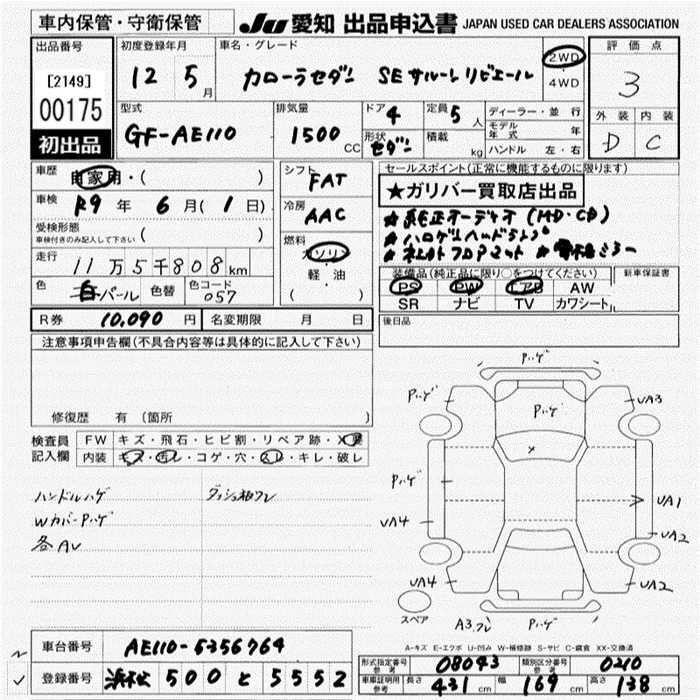 車内保管・守衛保管
JU 愛知 出品申込書 JAPAN USED CAR DEALERS ASSOCIATION
出品番号
[2149]
00175
初出品
初度登録年月
12 5月
車名・グレード
カローラセダン SEサルーンリビエール
2WD
4WD
評価点
3
外装 内装
D C
型式
GF-AE110
排気量
1500 CC
ドア 4
形状 セダン
定員 5人
積載 kg
ディーラー・並行
モデル年式 年
ハンドル 左・右
車歴
自家用・( )
車検
R9年 6月(1日)
受検形態
車検付きのみ記入して下さい ( )
走行
11万5千808km
色
白パール
色替
色コード
057
シフト
FAT
冷房
AAC
燃料
ガソリン
軽・油
( )
セールスポイント(正常に機能するものに限ります)
★ガリバー買取店出品
★純正オーディオ(MD・CD)
★ハロゲンヘッドランプ
装備品(純正品に限り○をつけてください)
新車保証書
PS PW エアB AW
SR ナビ TV カワシート
R券 10,090円
名変期限 月 日
後日品
注意事項申告欄(不具合内容等は具体的に記入して下さい)
修復歴 有 〔箇所 〕
検査員
記入欄
FW キズ・飛石・ヒビ割・リペア跡・X
内装 キズ・汚レ・コゲ・穴・スレ・キレ・破レ
ハンドルハゲ
WカバーPハゲ
各AU
Pハゲ
Pハゲ
Pハゲ
UA3
Pハゲ
UA1
UA4
UA2
UA4
UA2
スペア
Pハゲ
A-キズ E-エクボ U-凹み W-補修跡 S-サビ C-腐食 XX-交換済
車台番号
AE110-5356764
登録番号
浜松 500 と 5552
型式指定番号
参考
08043
類別区分番号
参考
0210
車庫証明用
参考
長さ 431 cm 幅 169 cm 高さ 138 cm